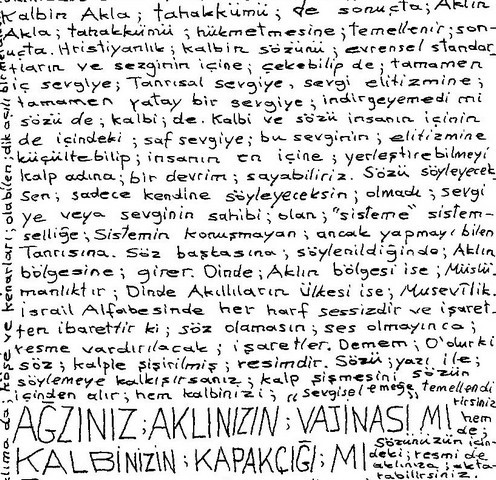 Kalbin Akla; tahakkümü; de sonuçta; Aklın
Akla; tahakkümü; hükmetmesine; temellenir; son-
uçta. Hristiyanlık; kalbin sözünü; evrensel standar
tların ve sezginin içine; çekebilip de; tamamen
iç sevgiye; Tanrısal sevgiye, sevgi elitizmine;
tamamen yatay bir sevgiye; indirgeyemedi mi
sözü de; kalbi; de. Kalbi ve sözü insanın içinin
de içindeki; saf sevgiye; bu sevginin; elitizmine
küçültebilip; insanın en içine; yerleştirebilmeyi
kalp adına; bir devrim; sayabiliriz. Sözü söyleyecek
sen; sadece kendine söyleyeceksin; olmadı; sevgi
ye veya sevginin sahibi; olan; "sisteme" sistem-
selliğe; Sistemin konuşmayan; ancak yapmayı bilen
Tanrısına. Söz başkasına; söylenildiğinde; Aklın
bölgesine; girer. Dinde; Aklın bölgesi ise; Müslü-
manlıktır; Dinde Akıllıların ülkesi ise; Musevilik.
İsrail Alfabesinde her harf sessizdir ve işaret-
ten ibarettir ki; söz olamasın; ses olmayınca;
resme vardırılacak; işaretler. Demem; O'durki
söz; kalple şişirilmiş; resimdir. Sözü; yazı ile;
söylemeye kalkışırsanız; kalp şişmesini sözün
içinden alır; hem kalbinizi; "sevgisel emeğe" temellendi
rirsiniz
hem
de;
AĞZINIZ; AKLINIZIN; VAJİNASI MI
KALBİNİZİN; KAPAKÇIĞI; MI
Sözünüzün için-
deki; resmi de
aklınıza; akta-
rabilirsiniz.
köşe ve kenarları; olabilen; dik açılı bir